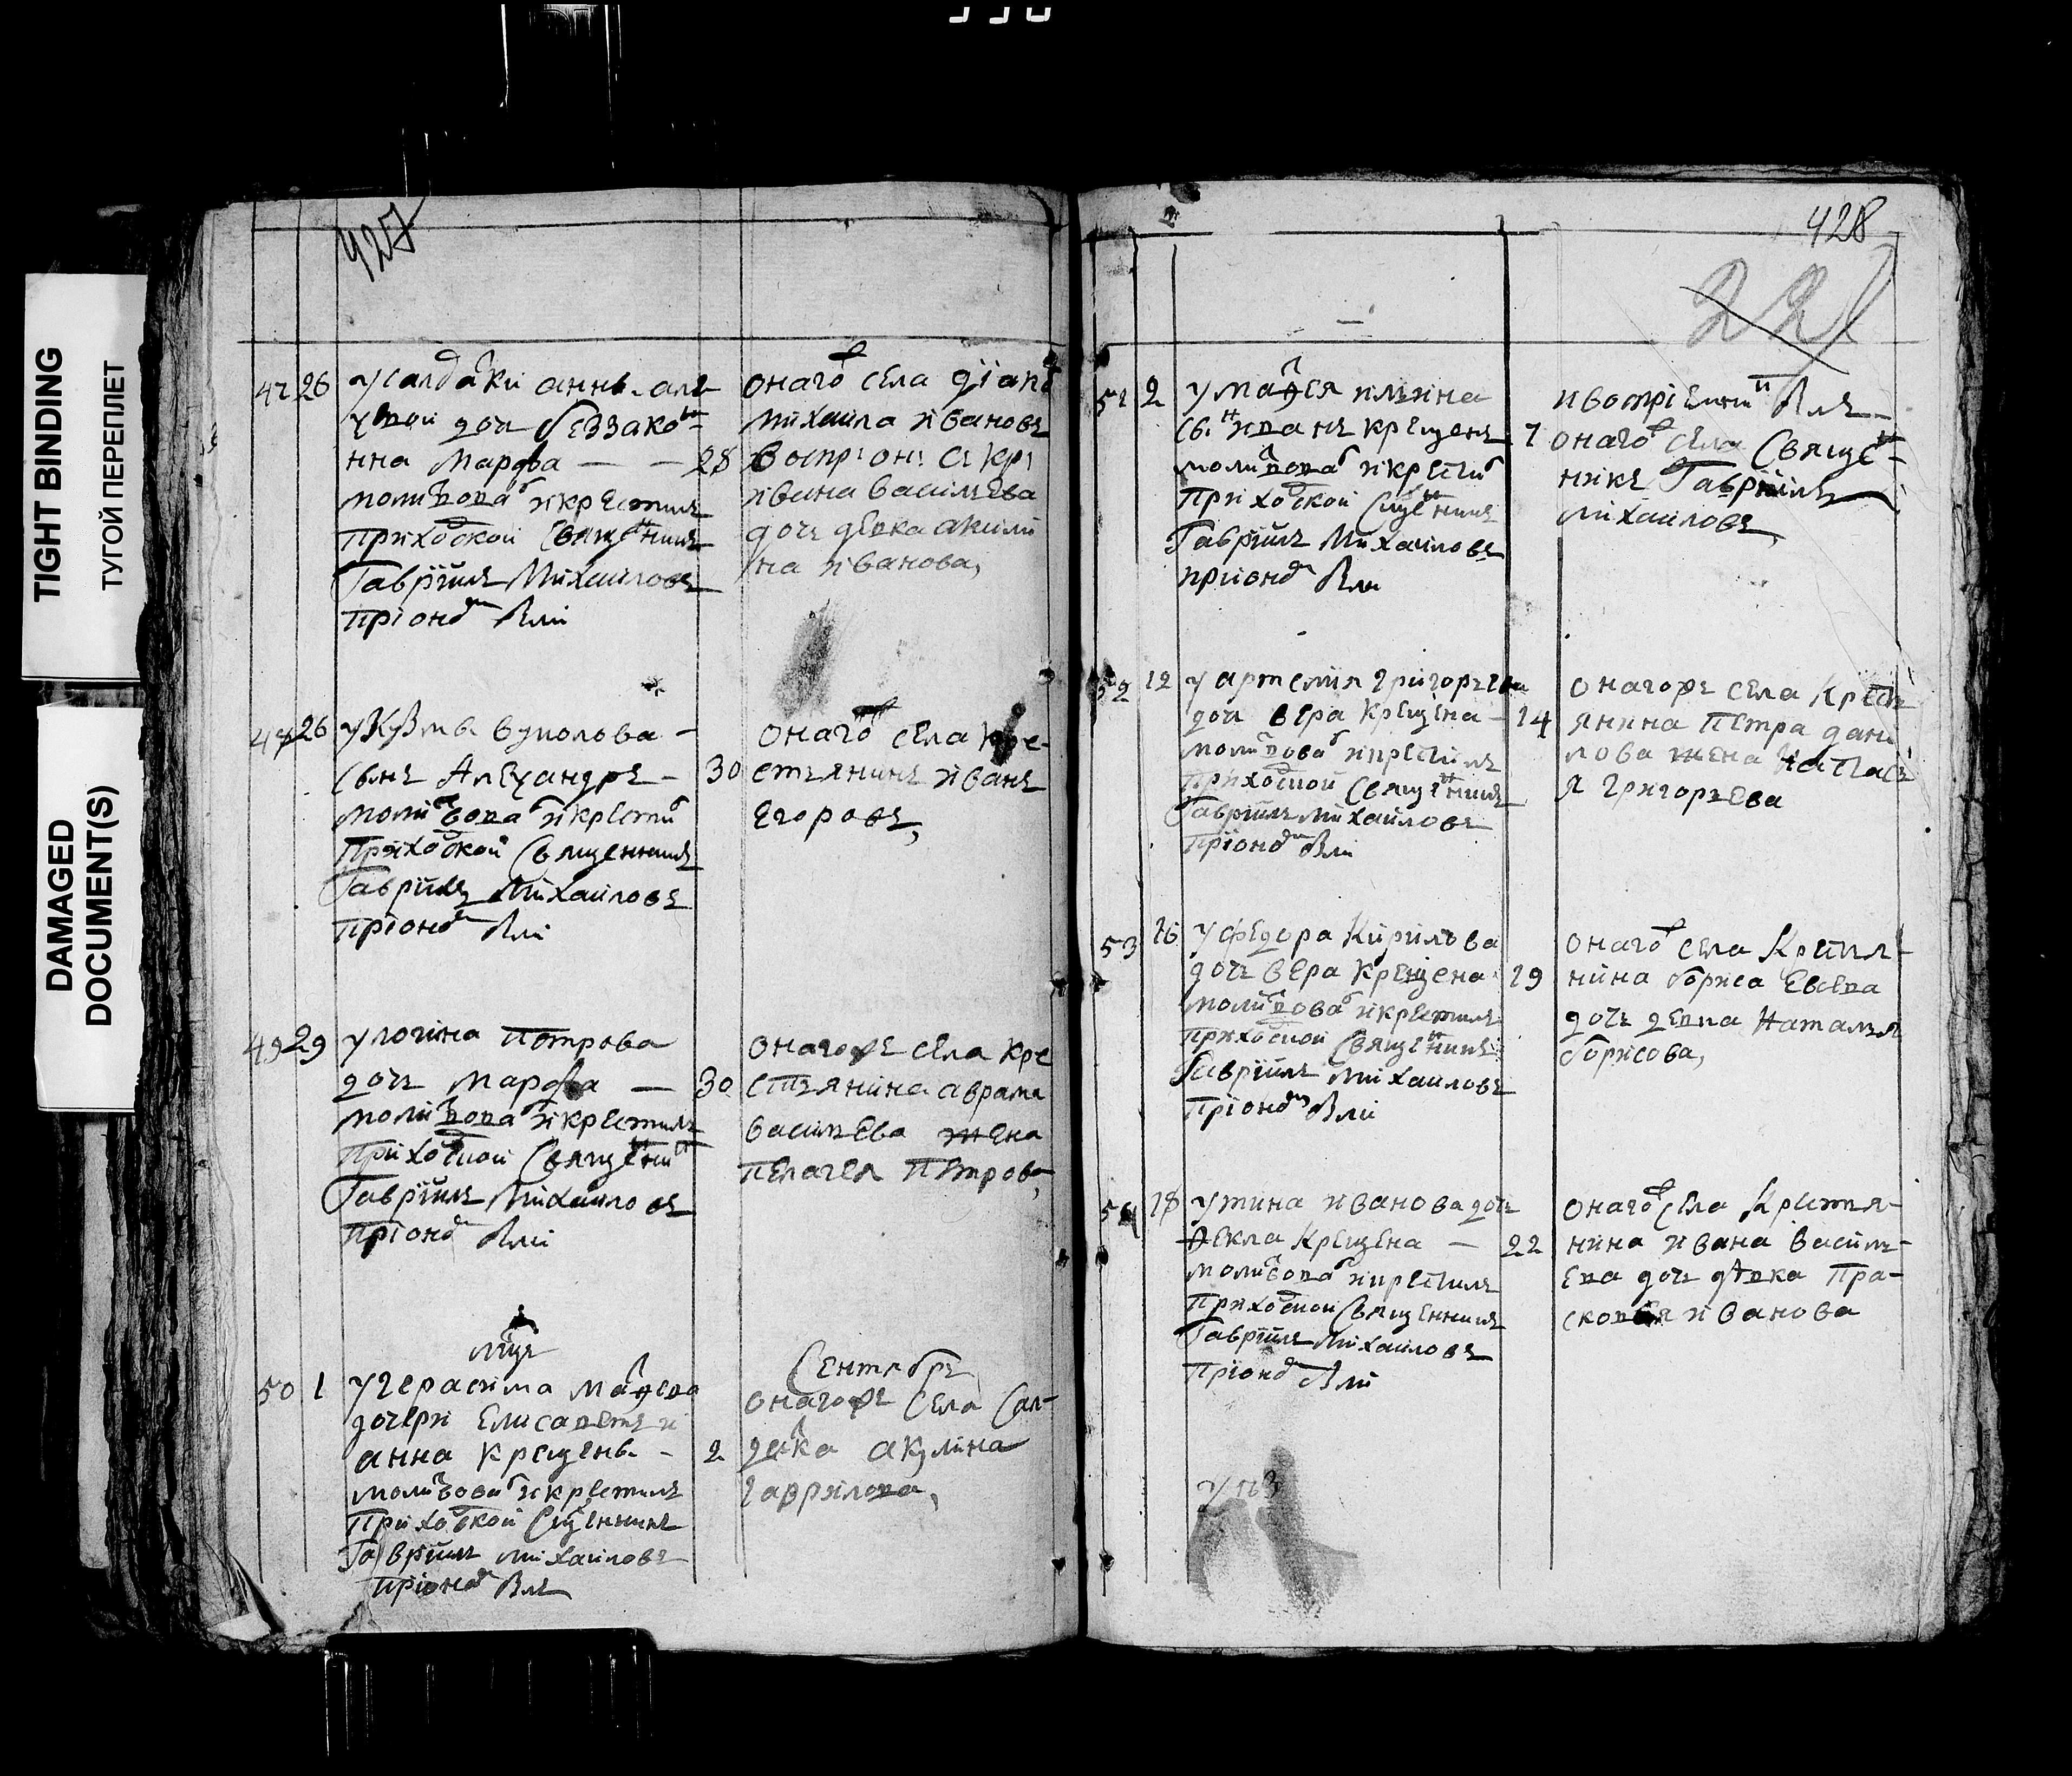 TIGHT BINDING
ТУГОЙ ПЕРЕПЛЕТ
DAMAGED
DOCUMENT(S)
427
47 26 у салдатки анны
дочь беззако
нна Марфа — — 28
молитвовал и крестилъ
приходской священникъ
Гавріилъ Михаиловъ
при оном были
онаго села діако
Михаила Ивановъ
воспр: он: с: кр:
ивана василева
дочь девка акили
на иванова,
26 у Кузмы
сынъ Александръ — 30
молитвовал и крестил
приходской священникъ
Гавріилъ Михаиловъ
при оном были
онаго села кре-
стьянинъ иванъ
Егоровъ,
49 29 у логина петрова
дочь Марфа — 30
молитвовал и крестилъ
приходской священник
Гавріилъ Михаиловъ
при оном были
онагоже села кре
стьянина аврама
василева жена
пелагея петрова,
мцъ Сентябръ
50 1 у герасима матвева
дочери Елисаветъ и
анна крещены — 2
молитвовал и крестилъ
приходской сщенникъ
Гавріилъ Михаиловъ
при оном былъ
онагоже села сал-
датка акулина
гаврилова,
428
221
51 2 у матвея
сынъ иванъ крещенъ 7
молитвовал и крестил
приходской сщенникъ
Гавріилъ Михаиловъ
при оном были
и воспріемник былъ
онаго села священ-
никъ Гавріилъ
Михаиловъ,
52 12 у артемия григорьева
дочь вера крещена — 14
молитвовал и крестилъ
приходской священникъ
Гавріилъ Михаиловъ
при оном были
онагоже села крест
янина петра дани
лова жена
я григорьева
53 16 у федора кирилова
дочь вера крещена 19
молитвовал и крестилъ
приходской священникъ
Гавріилъ Михаиловъ
при оном были
онаго села крестья-
нина бориса Евсева
дочь девка наталья
борисова,
54 18 у тина иванова дочь
Фекла крещена — 22
молитвовал и крестилъ
приходской священникъ
Гавріилъ Михаиловъ
при оном были
онаго села крестья-
нина ивана василь-
ева дочь девка пра-
сковья иванова